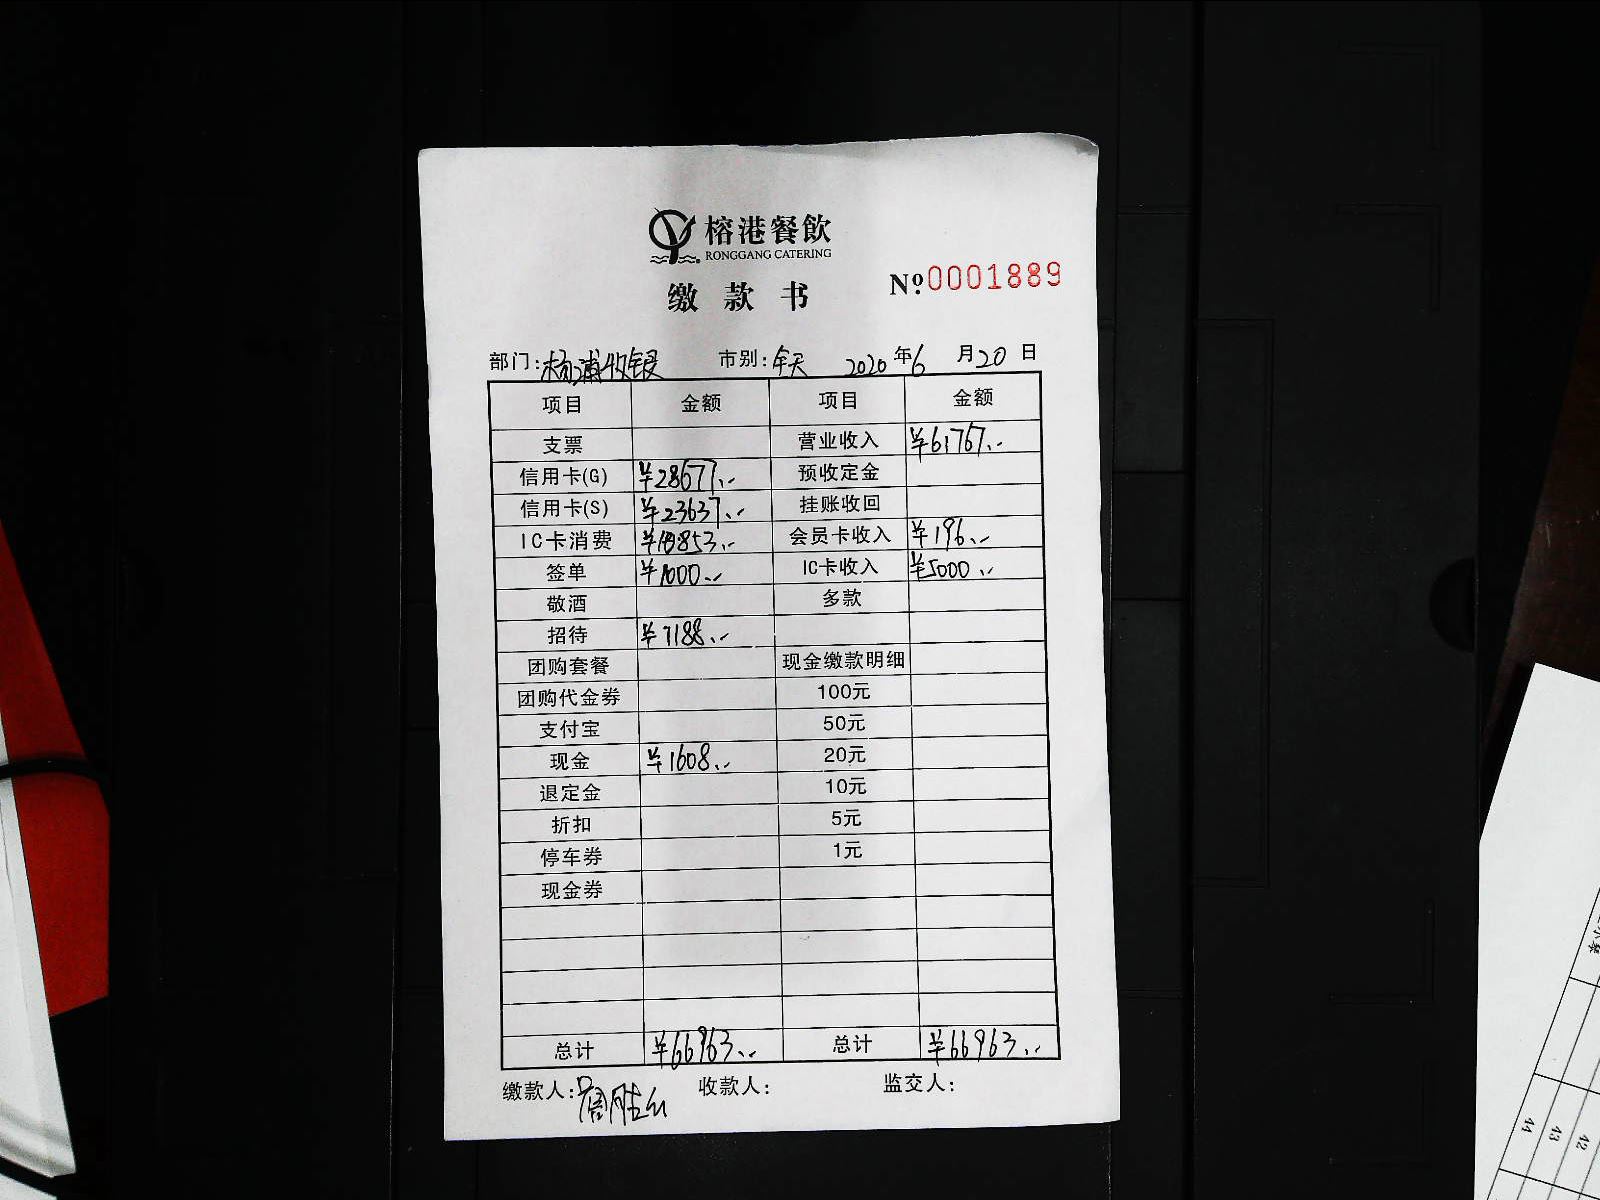 榕港餐飲
RONGGANG CATERING
缴款书
№0001889
部门:杨浦收银 市别:全天 2020年6月20日
项目 金额 项目 金额
支票 营业收入 ¥61767.--
信用卡(G) ¥28677.-- 预收定金
信用卡(S) ¥23637.-- 挂账收回
IC卡消费 ¥10853.-- 会员卡收入 ¥196.--
签单 ¥1000.-- IC卡收入 ¥5000.--
敬酒 多款
招待 ¥1188.--
团购套餐 现金缴款明细
团购代金券 100元
支付宝 50元
现金 ¥1608.-- 20元
退定金 10元
折扣 5元
停车券 1元
现金券
总计 ¥66963.-- 总计 ¥66963.--
缴款人:周胜 收款人: 监交人:
44
43
42